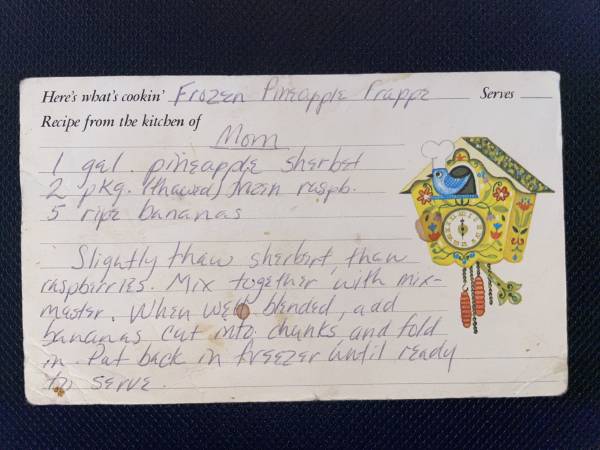 Here's what's cookin' Frozen Pineapple Frappe Serves
Recipe from the kitchen of
Mom
1 gal. pineapple sherbet
2 pkg. (thawed) frzen raspb.
5 ripe bananas
Slightly thaw sherbert, thaw
raspberries. Mix together with mix-
master. When well blended, add
bananas cut into chunks and fold
in. Put back in freezer until ready
to serve.